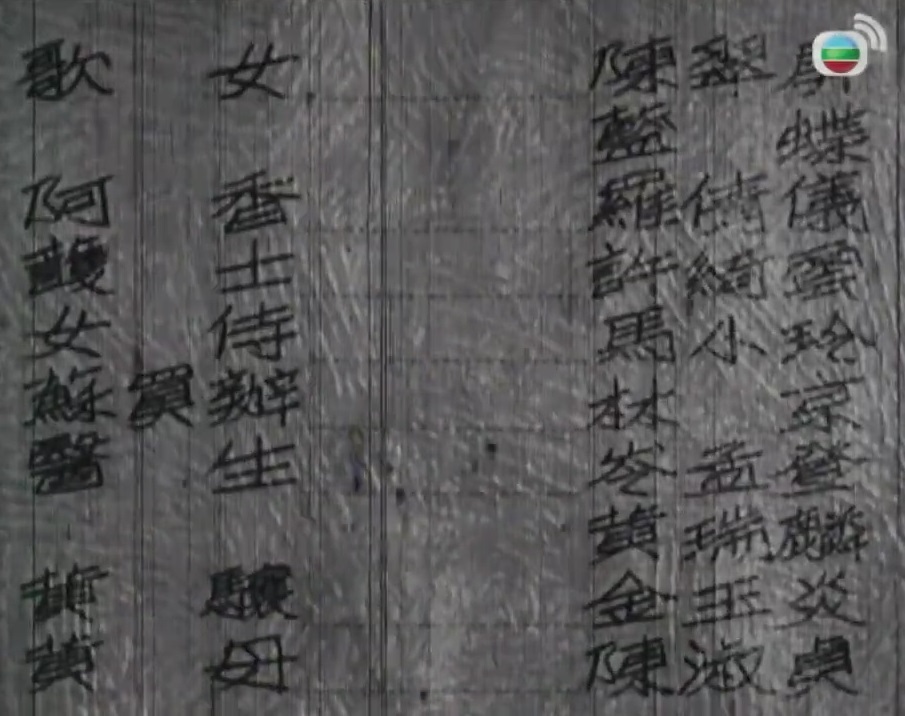 歌女 陳翠
藍蝶
阿香 羅倩儀
護士 許綺雲
女侍 馬小玲
蘇買辦 林京
醫生 岑孟登
黃瑞麟
黃驤 金玉炎
黃母 陳淑貞